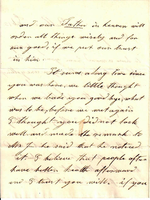 and our Father in heaven will
order all things wisely and for
our good if we put our trust
in him.
It seems a long time since
you was here, we little thought
when we bade you good bye, what
was to be, before we met again
I thought you did not look
well and made the remark to
he said that he noticed
it. I believe that people after
have better health afterward
and I trust you will, if you